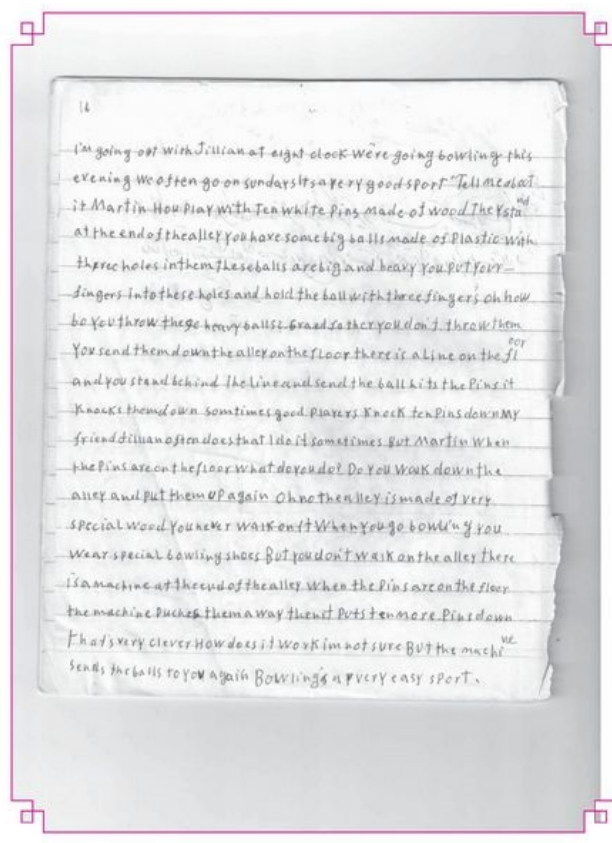 16
I'm going out with Jillian at eight clock We're going bowling this
evening We often go on sundays Its a very good sport "Tell me about
it Martin How Play with Ten white Pins made of wood They stand
at the end of the alley You have some big balls made of Plastic with
three holes in them these balls are big and heavy You put your
fingers into these holes and hold the ball with three finger's oh how
do You throw these heavy balls? Grandfather you don't throw them
You send them down the alley on the floor there is a line on the floor
and you stand behind The line and send the ball hits the Pins it
Knocks them down somtimes good Players Knock ten Pins down My
friend Jillian often does that I do it sometimes But Martin when
the Pins are on the floor what do you do? Do You walk down the
alley and put them up again Oh no the alley is made of very
special wood You never walk on it When you go bowling you
wear special bowling shoes But you don't walk on the alley there
is a machine at the end of the alley when the Pins are on the floor
the machine Puches them away then it Puts ten more Pins down
That's very clever How does it work im not sure But the machine
sends the balls to You again Bowling's a very easy sport.